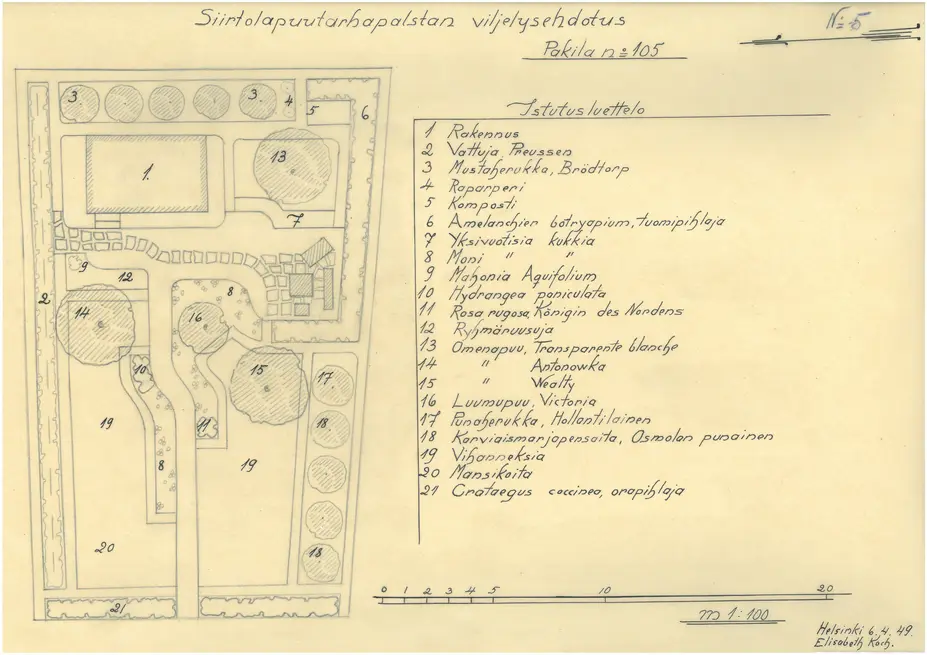 Siirtolapuutarhapalstan viljelysehdotus
N:o 5
Pakila n:o 105
Istutusluettelo
1 Rakennus
2 Vattuja, Preussen
3 Mustaherukka, Brödtorp
4 Raparperi
5 Komposti
6 Amelanchier botryapium, tuomipihlaja
7 Yksivuotisia kukkia
8 Moni " "
9 Mahonia Aquifolium
10 Hydrangea paniculata
11 Rosa rugosa, Königin des Nordens
12 Ryhmäruusuja
13 Omenapuu, Transparente blanche
14 " Antonowka
15 " Wealty
16 Luumupuu, Victoria
17 Punaherukka, Hollantilainen
18 Karviaismarjapensaita, Osmolan punainen
19 Vihanneksia
20 Mansikoita
21 Crataegus coccinea, orapihlaja
3 3 4 5 6
1. 13
7
9 12
2 8
14 16
10 15 17
19 11 18
8 19
20 18
21
0 1 2 3 4 5 10 20
m 1:100
Helsinki 6.4.49.
Elisabeth Koch.